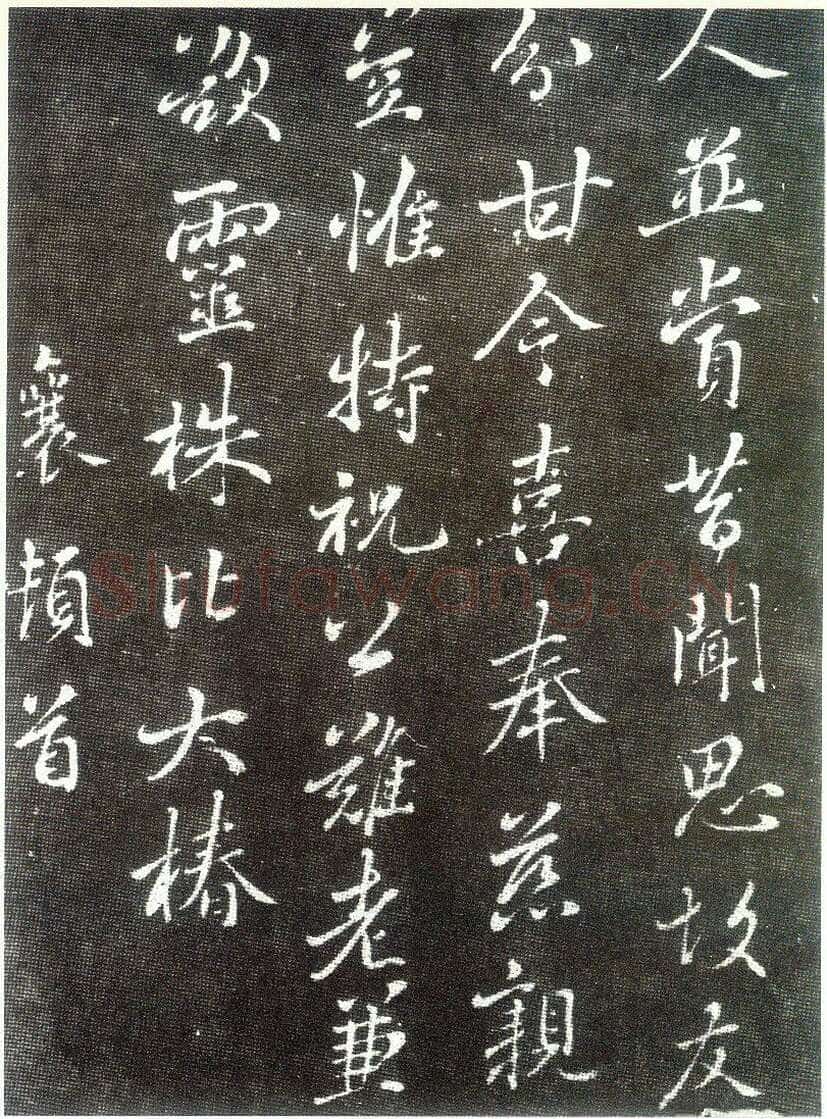 人並昔聞思故友
分甘今喜奉慈親
豈惟特祝公難老兼
欲靈株比大椿
襄頓首
Shufawang.CN